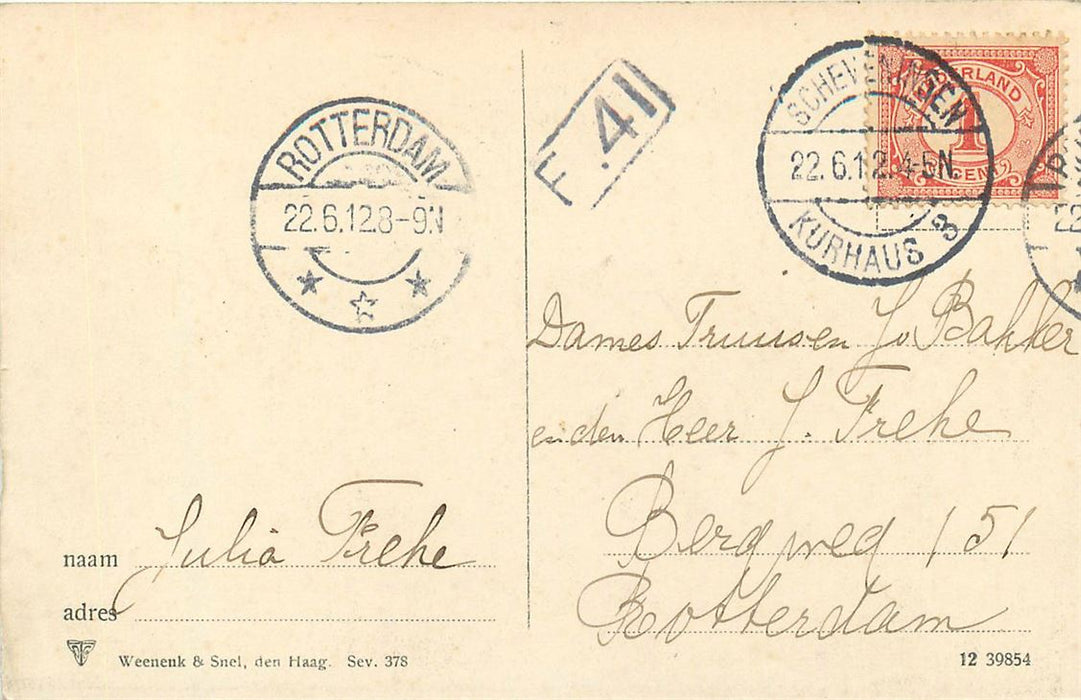 ROTTERDAM
22.6.12.8-9N
F.41
SCHEVENINGEN
22.6.12.4-5N
KURHAUS
NEDERLAND
1
CENT
Dames Truusen Jo Bakker
en den Heer J. Frehe
Bergweg 151
Rotterdam
naam Julia Frehe
adres
Weenenk & Snel, den Haag. Sev. 378
12 39854